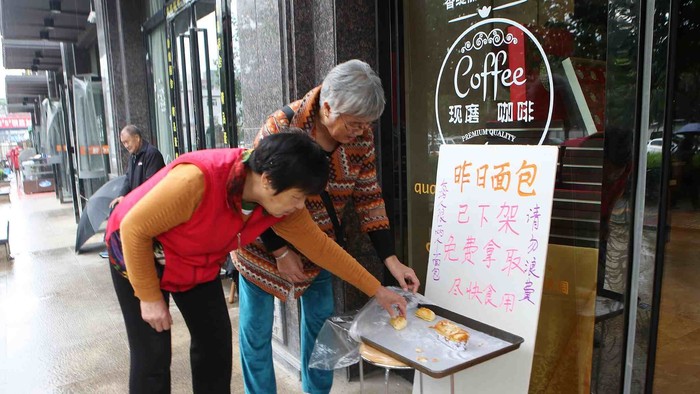 Coffee
现磨 咖啡
PREMIUM QUALITY
昨日面包
已下架
免费拿取
尽快食用
请勿浪费